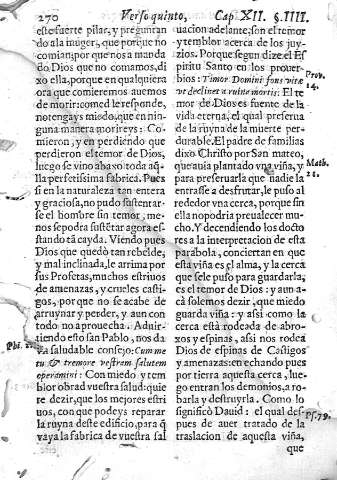 270 Verso quinto, Cap. XII. §. IIII.
este fuerte pilar, y preguntan
do a la muger, que porque no
comian, por que nos a manda
do Dios que no comamos, di
xo ella, porque en qualquiera
ora que comieremos auemos
de morir: comed le responde,
no tengays miedo, que en nin
guna manera morireys: Co-
mieron, y en perdiendo que
perdieron el temor de Dios,
luego se vino abaxo toda aq̃-
lla perfetissima fabrica. Pues
si en la naturaleza tan entera
y graciosa, no pudo sustentar-
se el hombre sin temor, me-
nos se podra sustẽtar agora es-
tando tã cayda. Viendo pues
Dios que quedò tan rebelde,
y mal inclinada, le arrima por
sus Profetas, muchos estriuos
de amenazas, y crueles casti-
gos, por que no se acabe de
arruynar y perder, y aun con
todo no aprouecha. Aduir-
tiendo esto san Pablo, nos da
Phi. 2. a saludable consejo: Cum me
tu & tremore vestram salutem
operamini: Con miedo y tem
blor obrad vuestra salud: quie
re dezir, que los mejores estri
uos, con que podeys reparar
la ruyna deste edificio, para q̃
vaya la fabrica de vuestra sal
uacion adelante, son el temor
y temblor acerca de los juy-
zios. Porque segun dize el Es
piritu Santo en los prouer-
bios: Timor Domini fons vitæ Prou.
vt declinet a ruina mortis: El te 14.
mor de Dios es fuente de la
vida eterna, el qual preserua
de la ruyna de la muerte per-
durable. El padre de familias
dixo Christo por San mateo,
que auia plantado vna viña, y Math.
para preseruarla que nadie la 21.
entrasse a desfrutar, le puso al
rededor vna cerca, porque sin
ella no podria preualecer mu-
cho. Y decendiendo los docto
res a la interpretacion de esta
parabola, conciertan en que
esta viña es el alma, y la cerca
que se le puso para guardarla,
es el temor de Dios: y aun a-
cà solemos dezir, que miedo
guarda viña: y assi como la
cerca està rodeada de abro-
xos y espinas, assi nos rodea
Dios de espinas de Castigos
y amenazas: en echando pues
por tierra aquesta cerca, lue-
go entran los demonios, a ro-
barla y destruyrla. Como lo
significò Dauid: el qual des- Ps. 79.
pues de auer tratado de la
traslacion de aquesta viña,
que